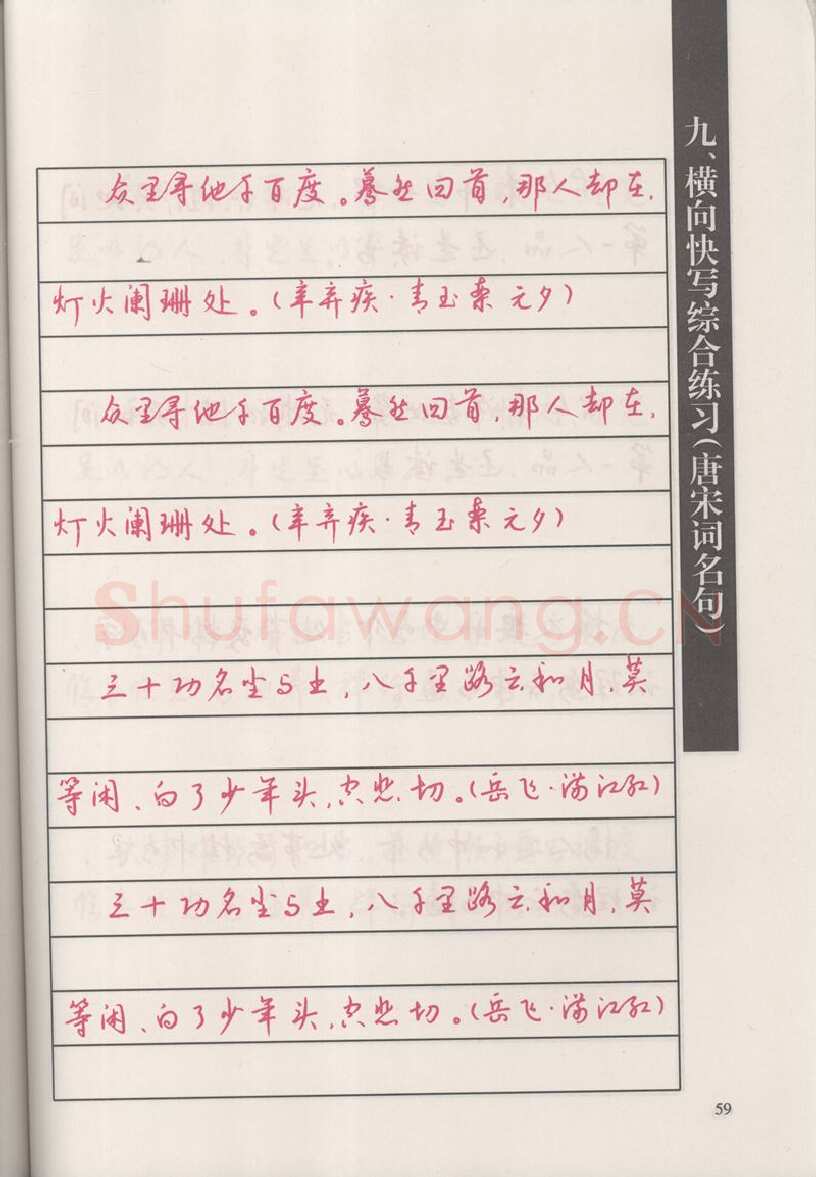 九、横向快写综合练习(唐宋词名句)
众里寻他千百度。蓦然回首,那人却在,
灯火阑珊处。(辛弃疾·青玉案 元夕)
众里寻他千百度。蓦然回首,那人却在,
灯火阑珊处。(辛弃疾·青玉案 元夕)
Shufawang.CN
三十功名尘与土,八千里路云和月,莫
等闲、白了少年头,空悲切。(岳飞·满江红)
三十功名尘与土,八千里路云和月,莫
等闲、白了少年头,空悲切。(岳飞·满江红)
59